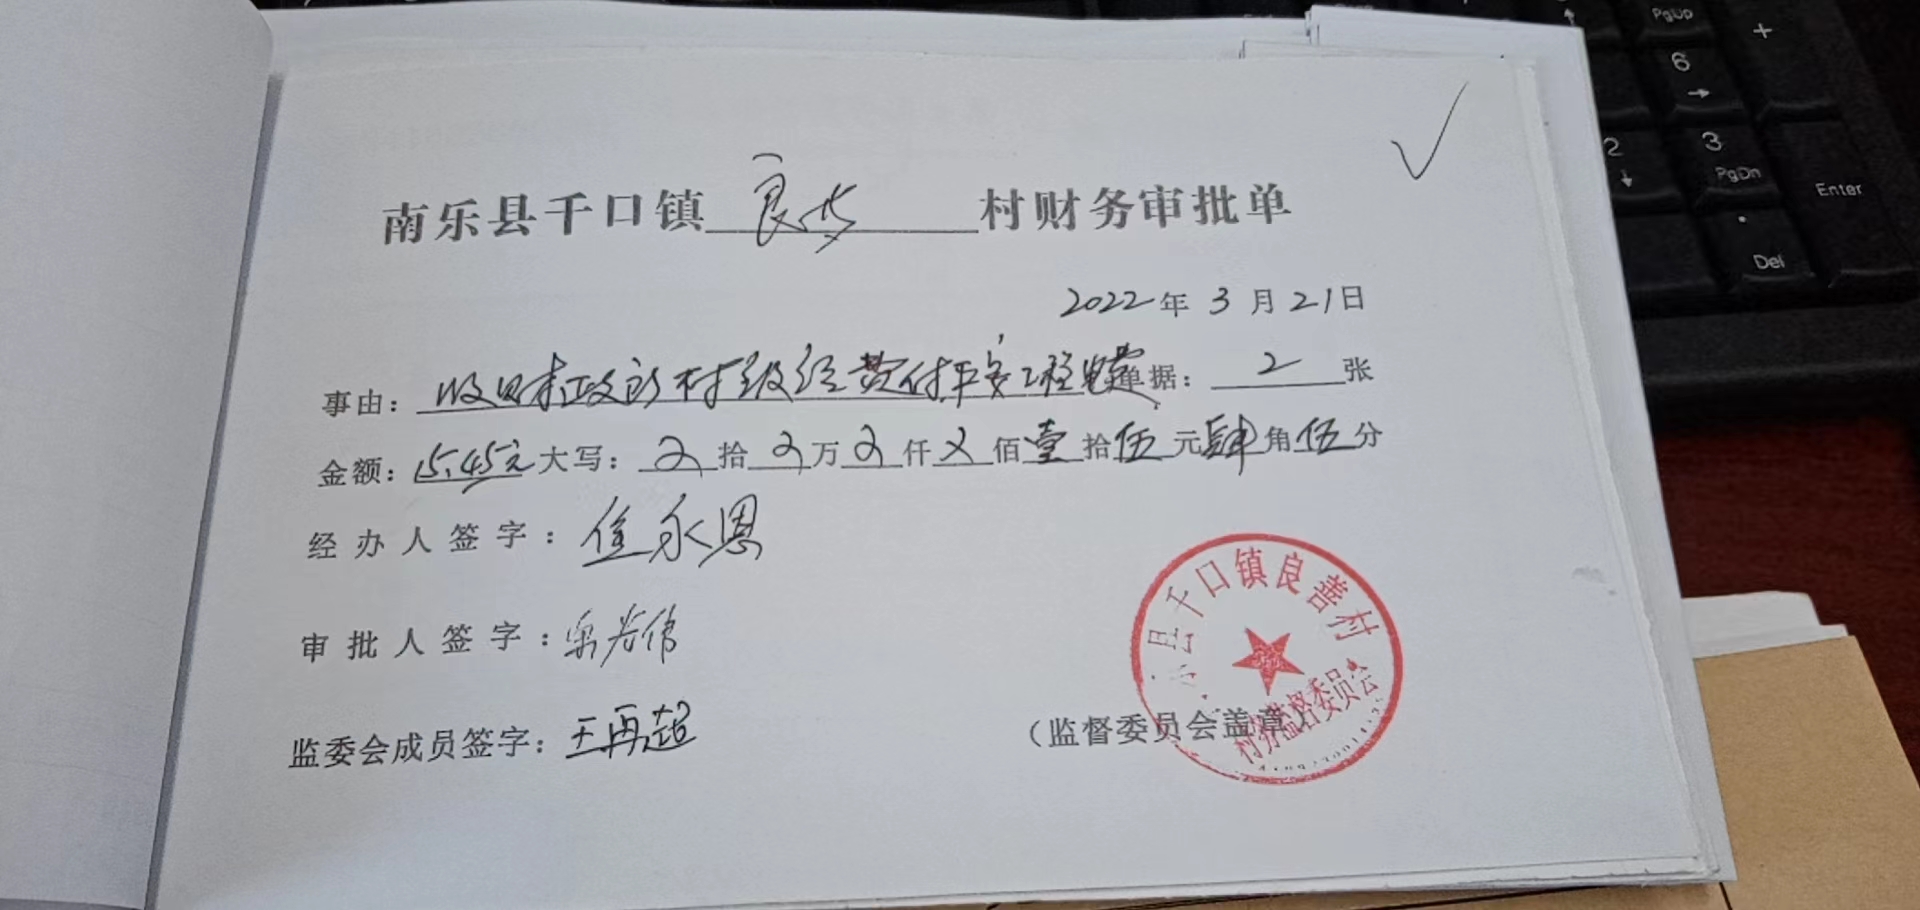 南乐县千口镇 良善 村财务审批单
2022年 3 月 21日
事由： 收财政的村级经费付平安工程电费 单据： 2 张
金额：15.45元 大写： 又 拾 又 万 又 仟 又 佰 壹 拾 伍 元 肆 角 伍 分
经办人签字：永恩
审批人签字：
监委会成员签字：王再超
（监督委员会盖章）
乐县千口镇良善村
村务监督委员会
PgUp
+
6
2
3
PgDn
Enter
Del